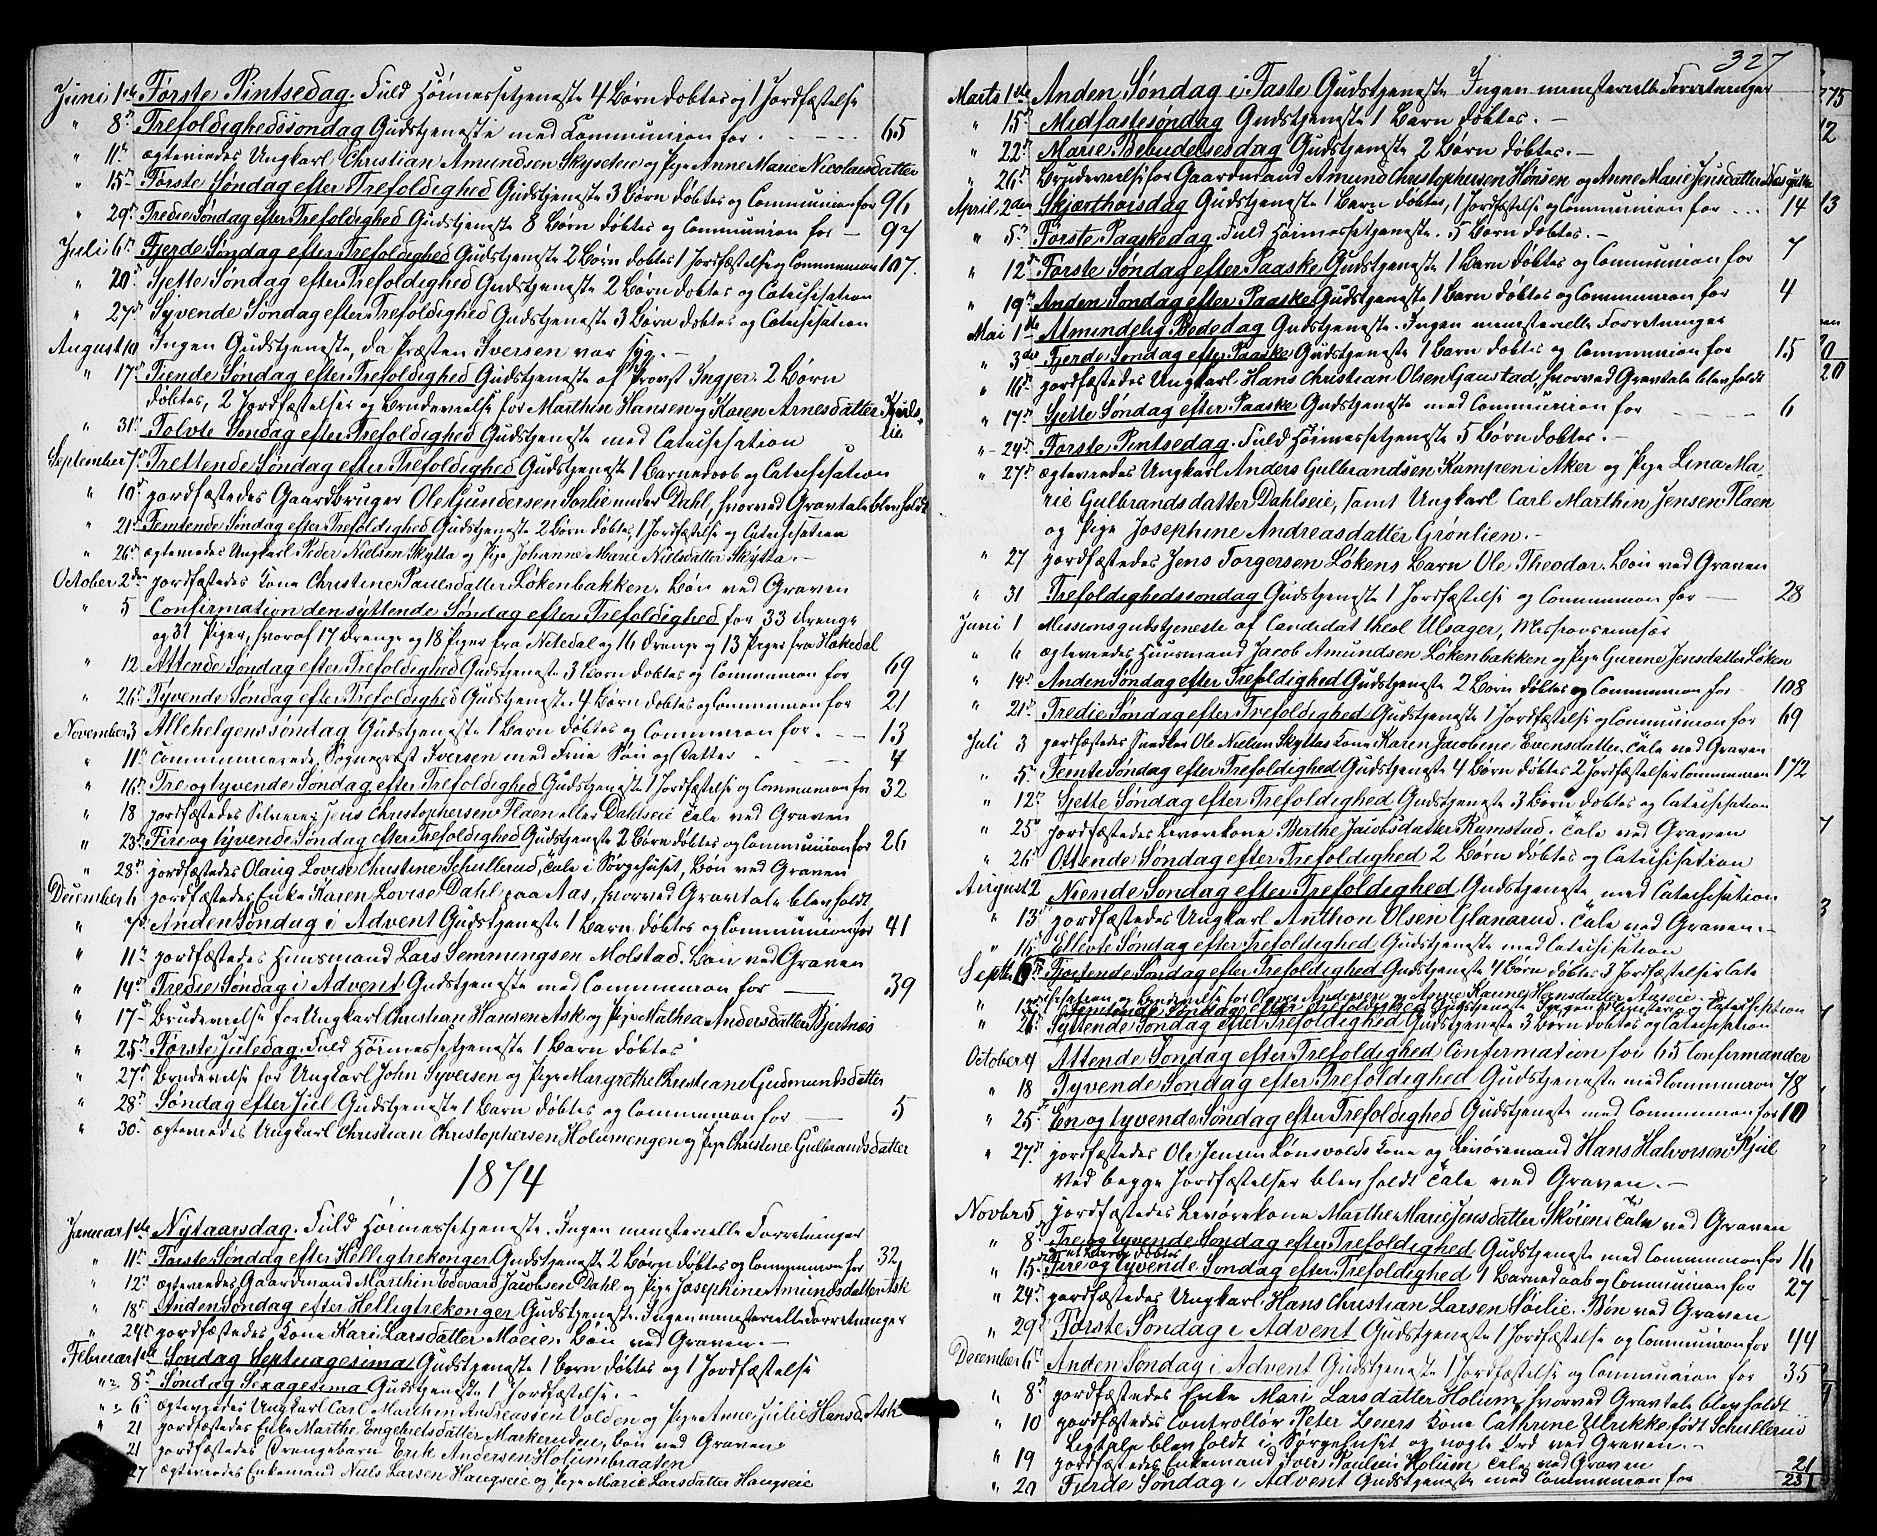 Juni 1ste Første Pintsedag. Fuld Høimessetjeneste 4 Børn døbtes og 1 Jordfæstelse
" 8de Trefoldighedssøndag Gudstjeneste med Communion for - - - - 65
" 11te ægteviedes Ungkarl Christian Amundsen Skyseie og Pige Anne Marie Nicolaisdatter
" 15de Første Søndag efter Trefoldighed Gudstjeneste 3 Børn døbtes og Communion for 96
" 29de Tredie Søndag efter Trefoldighed Gudstjeneste 8 Børn døbtes og Communion for - 97
Juli 6te Fjerde Søndag efter Trefoldighed Gudstjeneste 2 Børn døbtes 1 Jordfæstelse og Communion 107.
" 20de Sjette Søndag efter Trefoldighed Gudstjeneste 2 Børn døbtes og Catechisation
" 27de Syvende Søndag efter Trefoldighed Gudstjeneste 3 Børn døbtes og Catechisation
August 10 Ingen Gudstjeneste, da Præsten Iversen var syg. -
" 17de Tiende Søndag efter Trefoldighed Gudstjeneste af Provst Ingjer. 2 Børn
døbtes, 2 Jordfæstelser og Brudevielse for Marthin Hansen og Karen Arnesdatter
" 31te Tolvte Søndag efter Trefoldighed Gudstjeneste med Catechisation
September 7de Trettende Søndag efter Trefoldighed Gudstjeneste 1 Barnedaab og Catechisation
" 10de jordfæstedes Gaardbruger Ole Gundersen Sørlie under Dahl, hvorved Gravtale blev holdt
" 21de Femtende Søndag efter Trefoldighed Gudstjeneste 2 Børn døbtes, 1 Jordfæstelse og Catechisation
" 26de ægteviedes Ungkarl Peder Nielsen Skytta og Pige Johanne Marie Nielsdatter Skytta. -
October 2den jordfæstedes Kone Christine Paulsdatter Løkenbakken. Bøn ved Graven
" 5 Confirmation den syttende Søndag efter Trefoldighed for 33 Drenge
og 31 Piger, hvoraf 17 Drenge og 18 Piger fra Nitedal og 16 Drenge og 13 Piger fra Hakedal
" 12 Attende Søndag efter Trefoldighed Gudstjeneste 3 Børn døbtes og Communion for 69
" 26de Tyvende Søndag efter Trefoldighed Gudstjeneste 4 Børn døbtes og Communion for 21
November 3 Allehelgenssøndag Gudstjeneste 1 Barn døbtes og Communion for - 13
" 11te communicerede Sognepræst Iversen med Frue Søn og Datter - - - 4
" 16de Tre og tyvende Søndag efter Trefoldighed Gudstjeneste 1 Jordfæstelse og Communion for 32
" 18 jordfæstedes Jens Christophersen Flaen eller Dahlseie Tale ved Graven
" 23de Fire og tyvende Søndag efter Trefoldighed Gudstjeneste 2 Børn døbtes og Communion for 26
" 28de jordfæstedes Olaug Lovise Christine Schullerud, Tale i Sørgehuset, Bøn ved Graven
December 6 jordfæstedes Enke Karen Lovise Dahl paa Aas, hvorved Gravtale blev holdt
" 7de Anden Søndag i Advent Gudstjeneste 1 Barn døbtes og Communion for 41
" 11te jordfæstedes Huusmand Lars Semmingsen Molstad. Bøn ved Graven
" 14de Tredie Søndag i Advent Gudstjeneste med Communion for - 39
" 17de Brudevielse for Ungkarl Christian Hansen Ask og Pige Mathea Andersdatter Bjertnæs
" 25de Første Juledag. Fuld Høimessetjeneste 1 Barn døbtes
" 27de Brudevielse for Ungkarl John Syversen og Pige Margrethe Christiane Gudmundsdatter
" 28de Søndag efter Juel Gudstjeneste 1 Barn døbtes og Communion for - 5
" 30te ægteviedes Ungkarl Christian Christophersen Holumengen og Pige Christine Gulbrandsdatter
1874
Januar 1ste Nytaarsdag. Fuld Høimessetjeneste. Ingen ministerielle Forretninger
" 11te Første Søndag efter Helligtrekonger Gudstjeneste 2 Børn døbtes og Communion for 32
" 12te ægteviedes Gaardmand Marthin Edevard Jacobsen Dahl og Pige Josephine Amundsdatter Ask
" 18de Anden Søndag efter Helligtrekonger Gudstjeneste. Ingen ministerielle Forretninger
" 24de jordfæstedes Kone Kari Larsdatter Moeien. Bøn ved Graven. -
Februar 1ste Søndag Septuagesima Gudstjeneste 1 Barn døbtes og 1 Jordfæstelse
" 8de Søndag Sexagesima Gudstjeneste 1 Jordfæstelse. -
" 6te ægteviedes Ungkarl Carl Marthin Andreassen Volden og Pige Anne Julie Hansd. Ask
" 21 jordfæstedes Enke Marthe Engebretsdatter Markeruden, Bøn ved Graven
21 jordfæstedes Drengebarn Erik Andersen Holumbraaten
27 ægteviedes Enkemand Niels Larsen Haugseie og Pige Marie Larsdatter Haugseie
327
Marts 1ste Anden Søndag i Faste Gudstjeneste Ingen ministerielle Forretninger
" 15de Midfastesøndag Gudstjeneste 1 Barn døbtes. -
" 22de Marie Bebudelsesdag Gudstjeneste 2 Børn døbtes. -
" 26de Brudevielse for Gaardmand Amund Christophersen Hønsen og Anne Marie Jensdatter
April 2den Skjærthorsdag Gudstjeneste 1 Barn døbtes, 1 Jordfæstelse og Communion for ... 14
" 5te Første Paaskedag. Fuld Høimessetjeneste. 5 Børn døbtes. -
" 12te Første Søndag efter Paaske Gudstjeneste 1 Barn døbtes og Communion for 7
" 19de Anden Søndag efter Paaske Gudstjeneste 1 Barn døbtes og Communion for 4
Mai 1ste Almindelig Bededag Gudstjeneste. Ingen ministerielle Forretninger
" 3die Fjerde Søndag efter Paaske Gudstjeneste 1 Barn døbtes og Communion for 15
" 16de jordfæstedes Ungkarl Hans Christian Olsen Gaustad, hvorved Gravtale blev holdt
" 17de Sjette Søndag efter Paaske Gudstjeneste med Communion for - - - - 6
" 24de Første Pintsedag. Fuld Høimessetjeneste 5 Børn døbtes. -
" 27de ægteviedes Ungkarl Anders Gulbrandsen Kampen i Aker og Pige Lina Ma
rie Gulbrandsdatter Dahlseie, samt Ungkarl Carl Marthin Jensen Flaen
og Pige Josephine Andreasdatter Grønlien. -
" 27 jordfæstedes Jens Torgersen Løkens Barn Ole Theodor. Bøn ved Graven
" 31 Trefoldighedssøndag Gudstjeneste 1 Jordfæstelse og Communion for - 28
Juni 1 Missionsgudstjeneste af Candidat theol Ulsager,
" 6 ægteviedes Huusmand Jacob Amundsen Løkenbakken og Pige Gurine Jensdatter Løken
" 14de Anden Søndag efter Trefoldighed Gudstjeneste 2 Børn døbtes og Communion for 108
" 21de Tredie Søndag efter Trefoldighed Gudstjeneste 1 Jordfæstelse og Communion for 69
Juli 3 jordfæstedes Snedker Ole Nielsen Skyttas Kone Karen Jacobine Evensdatter. Tale ved Graven
" 5te Femte Søndag efter Trefoldighed Gudstjeneste 4 Børn døbtes 2 Jordfæstelser Communion 172
" 12te Sjette Søndag efter Trefoldighed Gudstjeneste 3 Børn døbtes og Catechisation
" 25de jordfæstedes Leverekone Berthe Jacobsdatter Rumstad. Tale ved Graven
" 26de Ottende Søndag efter Trefoldighed 2 Børn døbtes og Catechisation
August 2 Niende Søndag efter Trefoldighed Gudstjeneste med Catechisation
" 13de jordfæstedes Ungkarl Anthon Olsen Glanerud. Tale ved Graven. -
" 16de Ellevte Søndag efter Trefoldighed Gudstjeneste med Catechisation
Septbr. 6te Fjortende Søndag efter Trefoldighed Gudstjeneste 4 Børn døbtes 3 Jordfæstelser Cate
chisation og Brudevielse for
" 26 Syttende Søndag efter Trefoldighed Gudstjeneste 3 Børn døbtes og Catechisation
October 4 Attende Søndag efter Trefoldighed Confirmation for 65 Confirmander
" 18 Tyvende Søndag efter Trefoldighed Gudstjeneste med Communion 78
" 25de En og tyvende Søndag efter Trefoldighed Gudstjeneste med Communion for 10
" 27de jordfæstedes Ole Jensen Kone og Leveremand Hans Halvorsen Kjul
Ved begge Jordfæstelser blev holdt Tale ved Graven. -
Novbr 5 jordfæstedes Leverekone Marthe Marie Jensdatter Skøien Tale ved Graven
" 8de Tre og tyvende Søndag efter Trefoldighed Gudstjeneste med Communion for 16
" 15de Fire og tyvende Søndag efter Trefoldighed 1 Barnedaab og Communion for 27
" 24de jordfæstedes Ungkarl Hans Christian Larsen Sørlie. Bøn ved Graven
" 29de Første Søndag i Advent Gudstjeneste 1 Jordfæstelse og Communion for 44
December 6te Anden Søndag i Advent Gudstjeneste 1 Jordfæstelse og Communion for 35
" 8de jordfæstedes Enke Mari Larsdatter Holum, hvorved Gravtale blev holdt
" 10 jordfæstedes Controllør Peter Beiers Kone Cathrine Ulrikke, født Schullerud
Ligtale blev holdt i Sørgehuset og nogle Ord ved Graven. -
" 19 jordfæstedes Enkemand Iver Paulsen Holum Tale ved Graven
" 20 Fjerde Søndag i Advent Gudstjeneste med Communion for 21